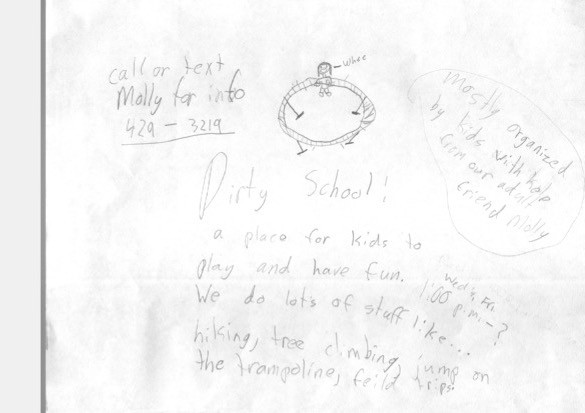 call or text
Molly for info
429 - 3219
Whee
mostly organized
by kids with help
from our adult
friend Molly
Dirty School!
a place for kids to
play and have fun.
Wed's, Fri.
1:00 p.m. - ?
We do lot's of stuff like...
hiking, tree climbing, jump on
the trampoline, feild trips